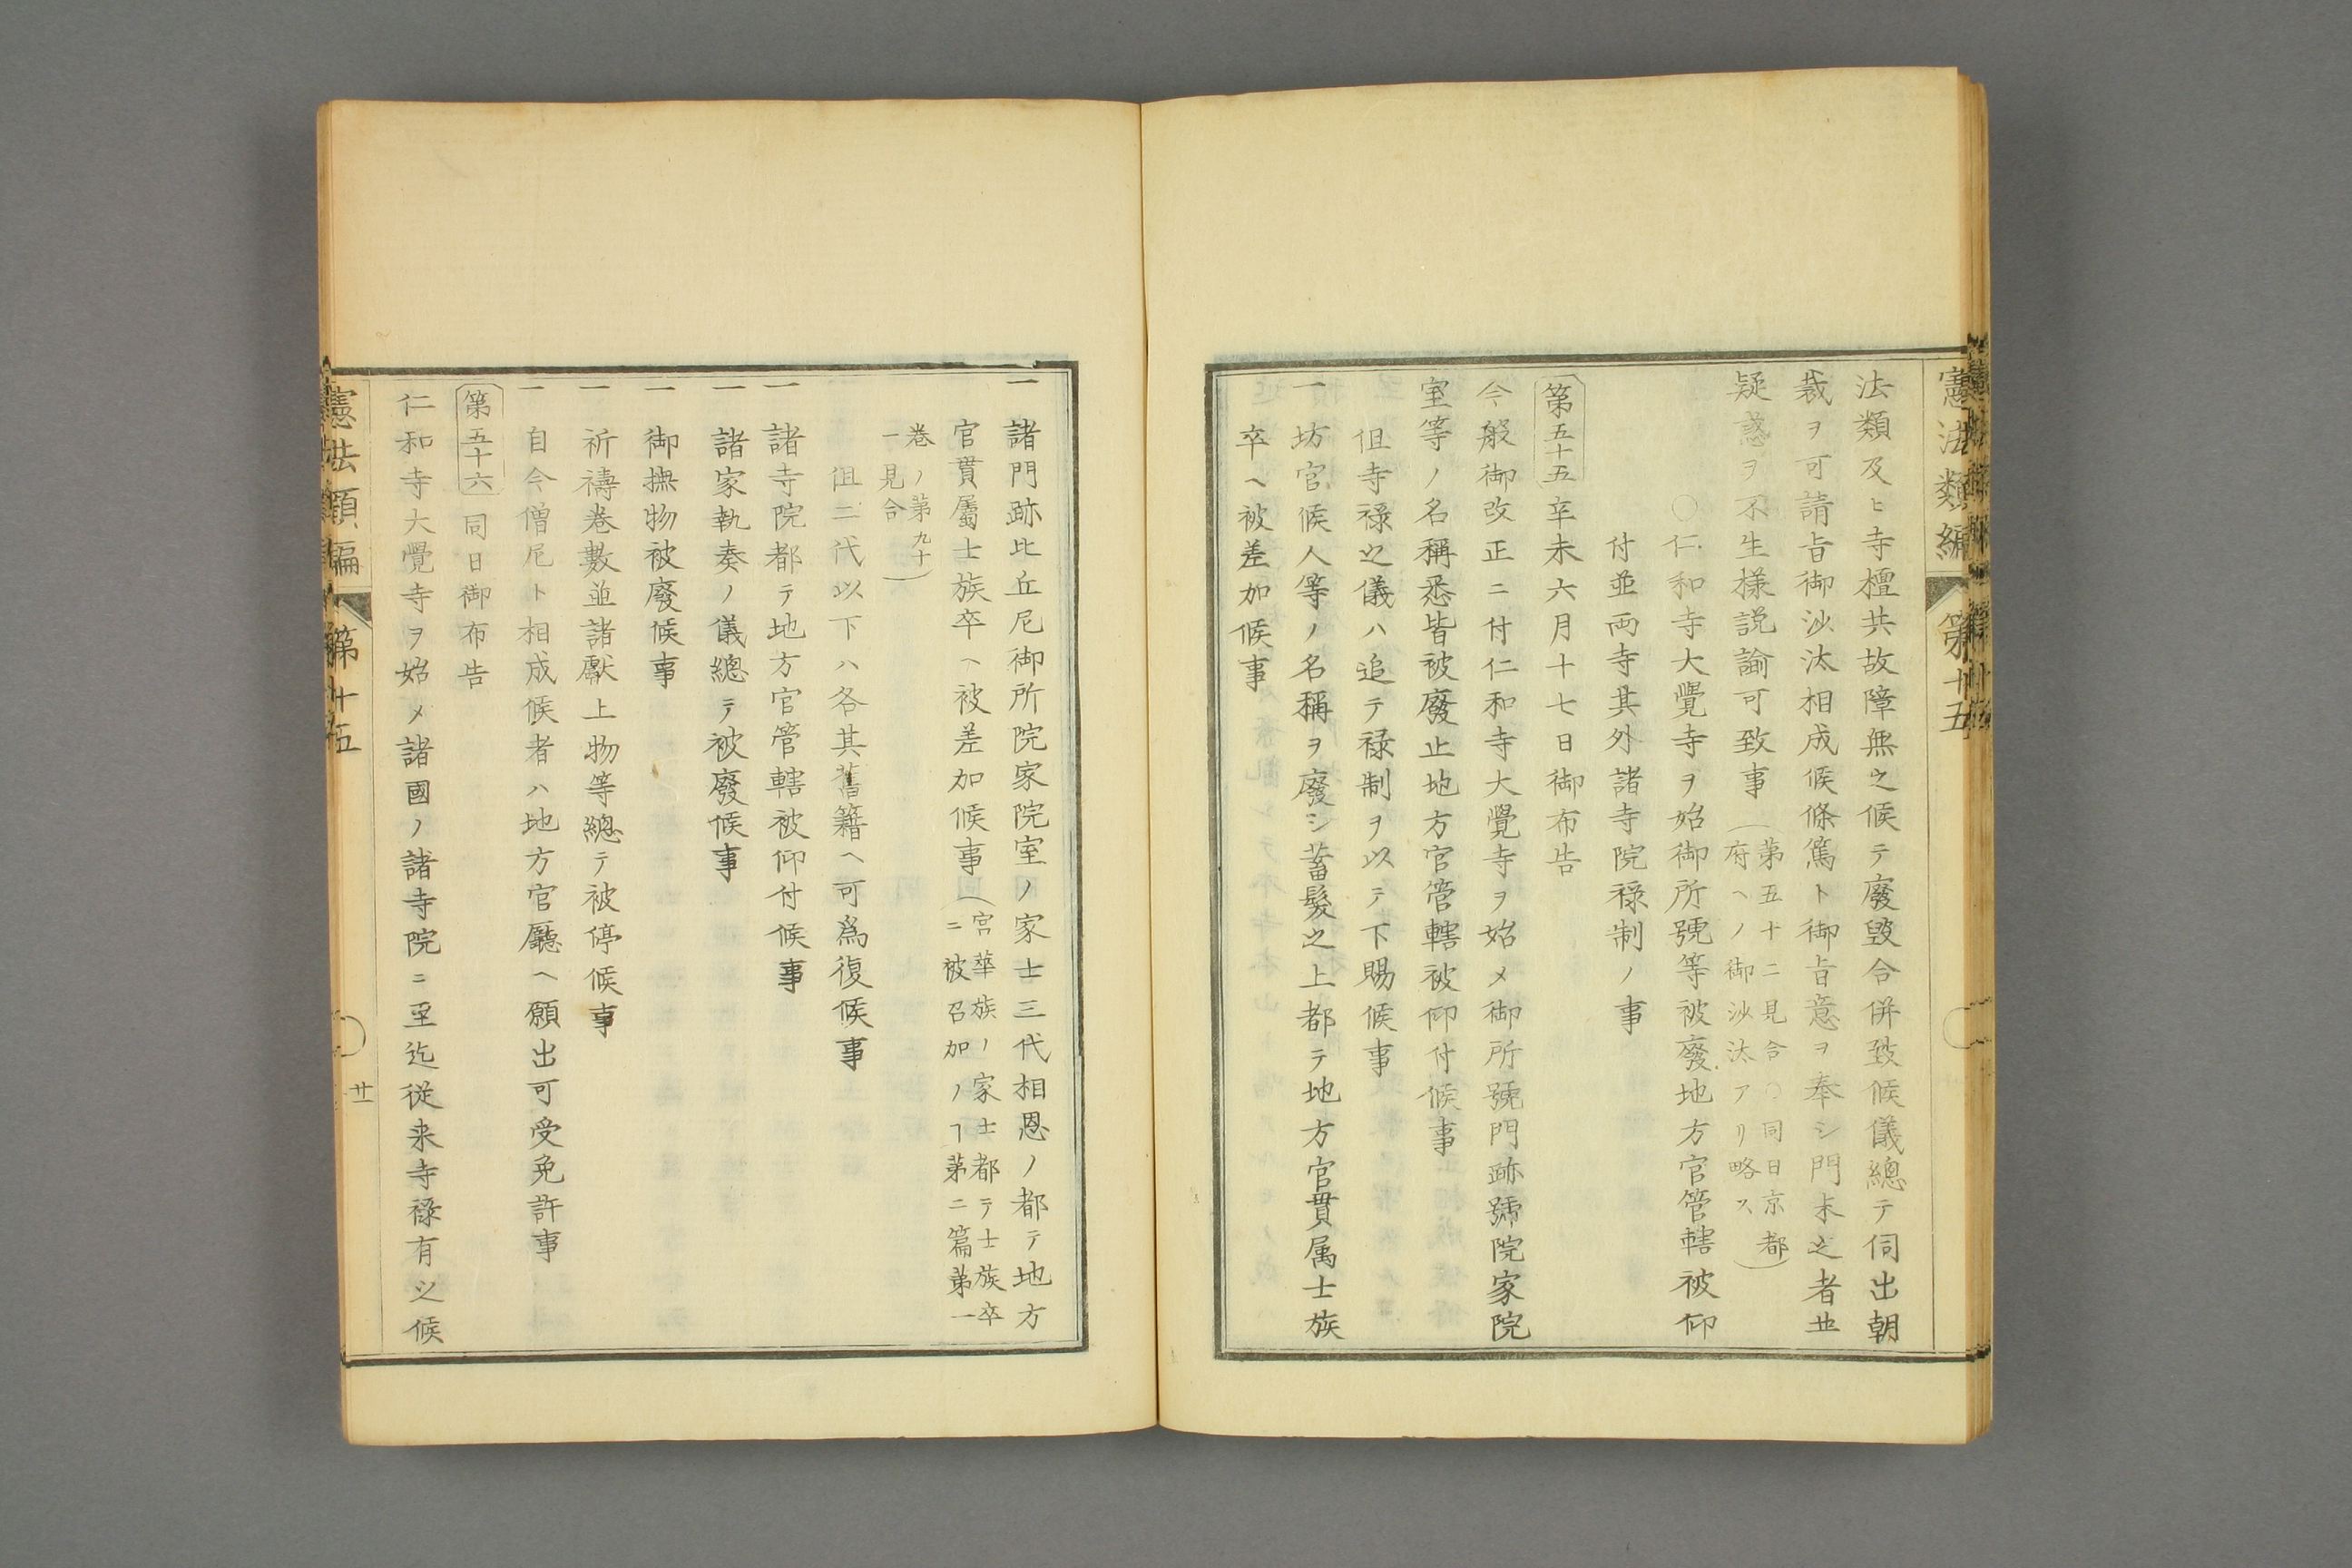 憲法類編
第十五
法類及ヒ寺檀共故障無之候テ廢毀合併致候儀總テ伺出朝
裁ヲ可請旨御沙汰相成候條篤ト御旨意ヲ奉シ門末之者㔺
疑惑ヲ不生様説諭可致事(第五十二見合○同日京都
府ヘノ御沙汰アリ略ス)
○仁和寺大覺寺ヲ始御所號等被廢地方官管轄被仰
付並両寺其外諸寺院禄制ノ事
第五十五 辛未六月十七日御布告
今般御改正ニ付仁和寺大覺寺ヲ始メ御所號門跡號院家院
室等ノ名稱悉皆被廢止地方官管轄被仰付候事
但寺禄之儀ハ追テ禄制ヲ以テ下賜候事
一坊官候人等ノ名稱ヲ廢シ蓄髮之上都テ地方官貫属士族
卒ヘ被差加候事
一諸門跡比丘尼御所院家院室ノ家士三代相恩ノ都テ地方
官貫屬士族卒ヘ被差加候事(宮華族ノ家士都テ士族卒
ニ被召加ノヿ第二篇第一
卷ノ第九十
一見合)
但二代以下ハ各其舊籍ヘ可爲復候事
一諸寺院都テ地方官管轄被仰付候事
一諸家執奏ノ儀總テ被廢候事
一御撫物被廢候事
一祈禱卷數並諸獻上物等總テ被停候事
一自今僧尼ト相成候者ハ地方官廳ヘ願出可受免許事
第五十六 同日御布告
仁和寺大覺寺ヲ始メ諸國ノ諸寺院ニ至迄從来寺禄有之候
憲法類編
第十五
廿一